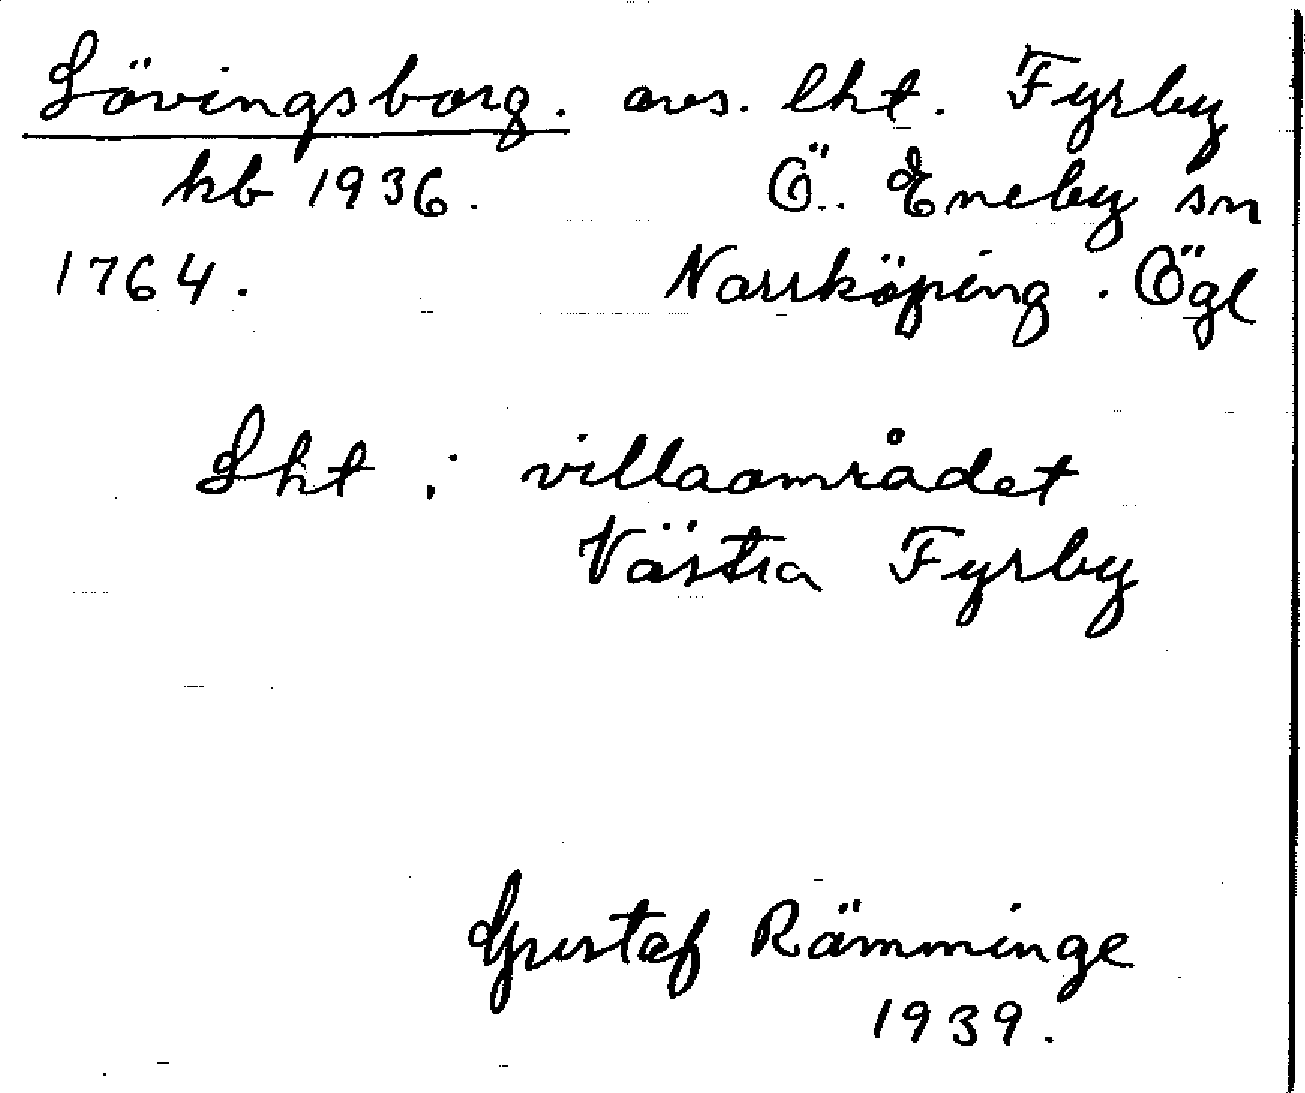 Lövingsborg. avs. lht. Fyrby
kb 1936. Ö. Eneby sn
1764. Norrköping. Ögl
Lht i villaområdet
Västra Fyrby
Gustaf Rämminge
1939.